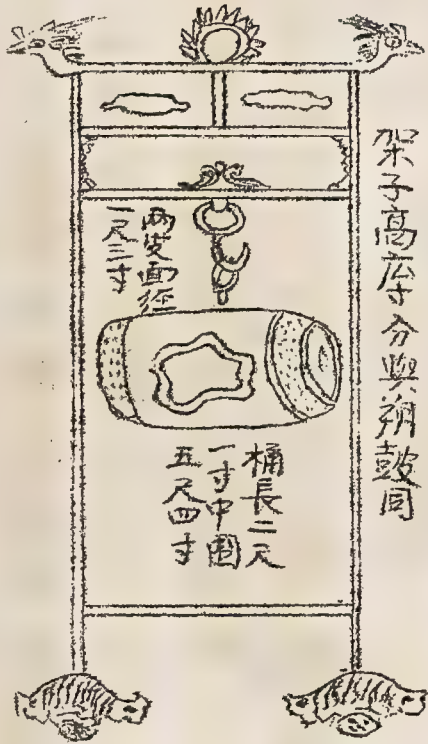 架子高広寸分與朔鼓同
両皮面径
一尺三寸
桶長二尺
一寸中圍
五尺四寸